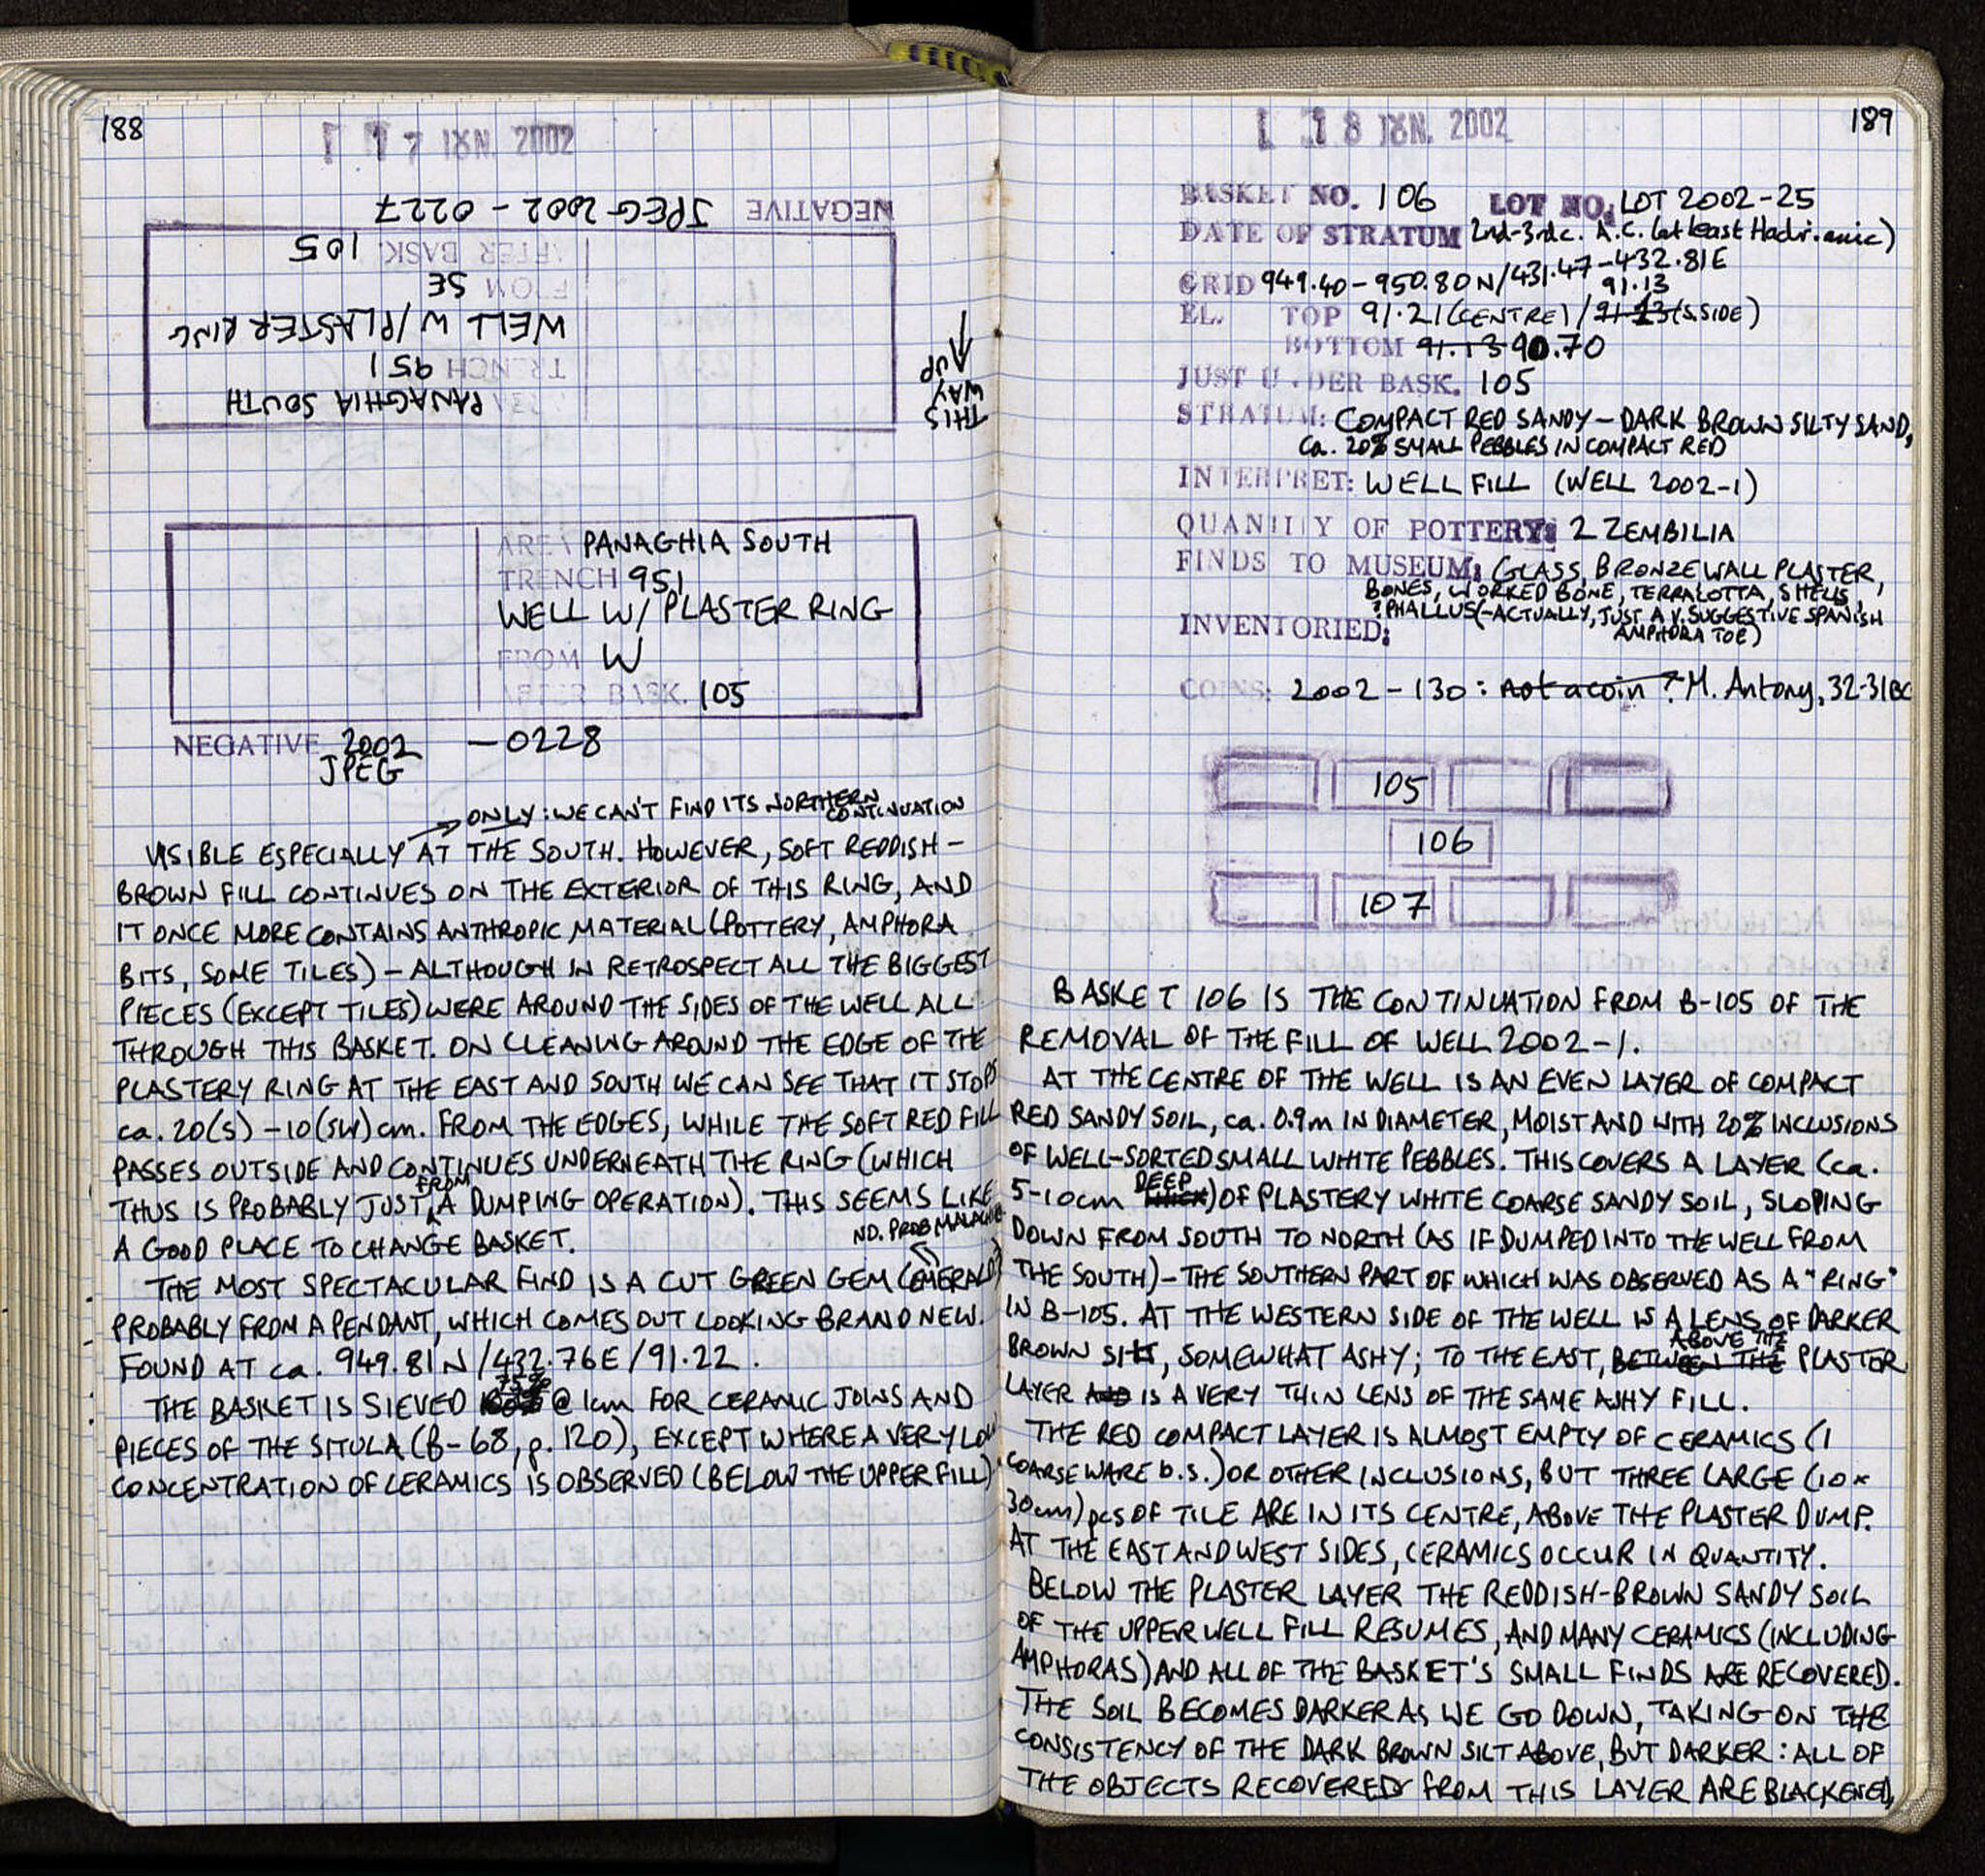 188
17 IOYN. 2002
NEGATIVE JPEG 2002 - 0227
PANAGHIA SOUTH
TRENCH 951
WELL W/PLASTER RING
FROM SE
AFTER BASK. 105
THIS
WAY
UP
AREA PANAGHIA SOUTH
TRENCH 951
WELL W/ PLASTER RING
FROM W
AFTER BASK. 105
NEGATIVE 2002 - 0228
JPEG
ONLY: WE CAN'T FIND ITS NORTHERN
CONTINUATION
VISIBLE ESPECIALLY AT THE SOUTH. HOWEVER, SOFT REDDISH-
BROWN FILL CONTINUES ON THE EXTERIOR OF THIS RING, AND
IT ONCE MORE CONTAINS ANTHROPIC MATERIAL (POTTERY, AMPHORA
BITS, SOME TILES) - ALTHOUGH IN RETROSPECT ALL THE BIGGEST
PIECES (EXCEPT TILES) WERE AROUND THE SIDES OF THE WELL ALL
THROUGH THIS BASKET. ON CLEANING AROUND THE EDGE OF THE
PLASTERY RING AT THE EAST AND SOUTH WE CAN SEE THAT IT STOPS
ca. 20(S) - 10(SW) cm. FROM THE EDGES, WHILE THE SOFT RED FILL
PASSES OUTSIDE AND CONTINUES UNDERNEATH THE RING (WHICH
THUS IS PROBABLY JUST FROM A DUMPING OPERATION). THIS SEEMS LIKE
A GOOD PLACE TO CHANGE BASKET.
NO. PROB MALACHITE
THE MOST SPECTACULAR FIND IS A CUT GREEN GEM (EMERALD?)
PROBABLY FROM A PENDANT, WHICH COMES OUT LOOKING BRAND NEW.
FOUND AT ca. 949.81N/432.76E/91.22.
THE BASKET IS SIEVED 75% @ 1cm FOR CERAMIC JOINS AND
PIECES OF THE SITULA (B-68, p. 120), EXCEPT WHERE A VERY LOW
CONCENTRATION OF CERAMICS IS OBSERVED (BELOW THE UPPER FILL)
189
18 IOYN. 2002
BASKET NO. 106 LOT NO. LOT 2002-25
DATE OF STRATUM 2nd-3rd c. A.C. (at least Hadrianic)
GRID 949.40-950.80N/431.47-432.81E
EL. TOP 91.21 (CENTRE) / 91.23 91.13 (S. SIDE)
BOTTOM 91.13 90.70
JUST UNDER BASK. 105
STRATUM: COMPACT RED SANDY - DARK BROWN SILTY SAND,
ca. 20% SMALL PEBBLES IN COMPACT RED
INTERPRET: WELL FILL (WELL 2002-1)
QUANTITY OF POTTERY: 2 ZEMBILIA
FINDS TO MUSEUM: GLASS, BRONZE WALL PLASTER,
BONES, WORKED BONE, TERRACOTTA, SHELLS,
?PHALLUS (-ACTUALLY, JUST A V. SUGGESTIVE SPANISH
AMPHORA TOE)
INVENTORIED:
COINS: 2002-130: not a coin ? M. Antony, 32-31BC
105
106
107
BASKET 106 IS THE CONTINUATION FROM B-105 OF THE
REMOVAL OF THE FILL OF WELL 2002-1.
AT THE CENTRE OF THE WELL IS AN EVEN LAYER OF COMPACT
RED SANDY SOIL, ca. 0.9m IN DIAMETER, MOIST AND WITH 20% INCLUSIONS
OF WELL-SORTED SMALL WHITE PEBBLES. THIS COVERS A LAYER (ca.
5-10cm THICK DEEP) OF PLASTERY WHITE COARSE SANDY SOIL, SLOPING
DOWN FROM SOUTH TO NORTH (AS IF DUMPED INTO THE WELL FROM
THE SOUTH) - THE SOUTHERN PART OF WHICH WAS OBSERVED AS A "RING"
IN B-105. AT THE WESTERN SIDE OF THE WELL IS A LENS OF DARKER
BROWN SILT, SOMEWHAT ASHY; TO THE EAST, BETWEEN THE ABOVE THE PLASTER
LAYER AND IS A VERY THIN LENS OF THE SAME ASHY FILL.
THE RED COMPACT LAYER IS ALMOST EMPTY OF CERAMICS (1
COARSE WARE b.s.) OR OTHER INCLUSIONS, BUT THREE LARGE (10 x
30cm) pcs OF TILE ARE IN ITS CENTRE, ABOVE THE PLASTER DUMP.
AT THE EAST AND WEST SIDES, CERAMICS OCCUR IN QUANTITY.
BELOW THE PLASTER LAYER THE REDDISH-BROWN SANDY SOIL
OF THE UPPER WELL FILL RESUMES, AND MANY CERAMICS (INCLUDING
AMPHORAS) AND ALL OF THE BASKET'S SMALL FINDS ARE RECOVERED.
THE SOIL BECOMES DARKER AS WE GO DOWN, TAKING ON THE
CONSISTENCY OF THE DARK BROWN SILT ABOVE, BUT DARKER: ALL OF
THE OBJECTS RECOVERED FROM THIS LAYER ARE BLACKENED,